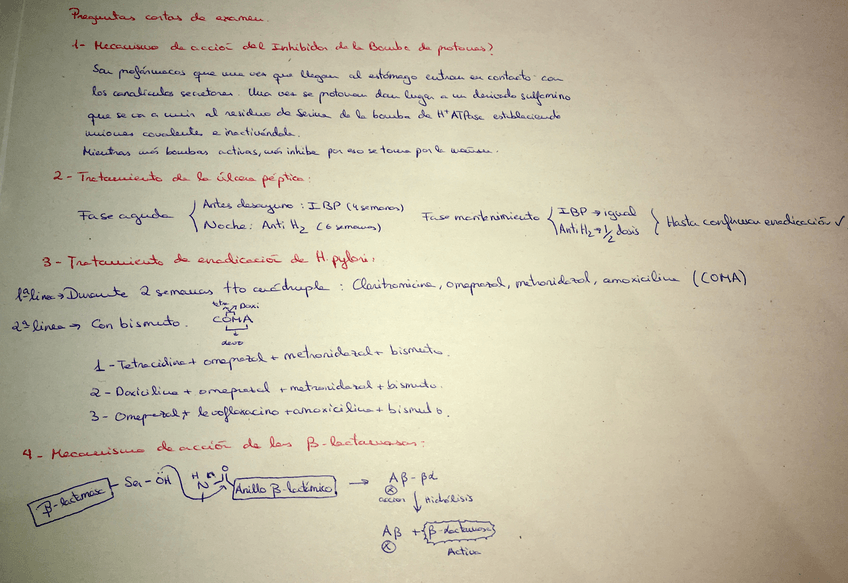 Preguntas cortas de examen.
1- Mecanismo de acción del Inhibidor de la Bomba de protones?
Son profármacos que una vez que llegan al estómago entran en contacto con
los canalículos secretores. Una vez se protonan dan lugar a un derivado sulfamino
que se va a unir al residuo de Serina de la bomba de H+ ATPasa estableciendo
uniones covalentes e inactivándola.
Mientras más bombas activas, más inhibe por eso se toma por la mañana.
2- Tratamiento de la úlcera péptica:
Fase aguda { Antes desayuno: IBP (4 semanas)
Noche: Anti H2 (6 semanas)
Fase mantenimiento { IBP → igual
Anti H2 → 1/2 dosis } Hasta confirmar erradicación ✓
3- Tratamiento de erradicación de H. pylori.
1ª línea → Durante 2 semanas tto cuádruple: Claritromicina, omeprazol, metronidazol, amoxicilina (COMA)
2ª línea → Con bismuto. COMA
Doxi
levo
1- Tetraciclina + omeprazol + metronidazol + bismuto.
2- Doxiciclina + omeprazol + metronidazol + bismuto.
3- Omeprazol + levofloxacino + amoxicilina + bismuto.
4- Mecanismo de acción de las β-lactamasas:
β-lactamasa - Ser - ÖH H N O Anillo β-lactámico → Aβ - βα
acción ↓ Hidrólisis
Aβ + β-lactamasa
Activa